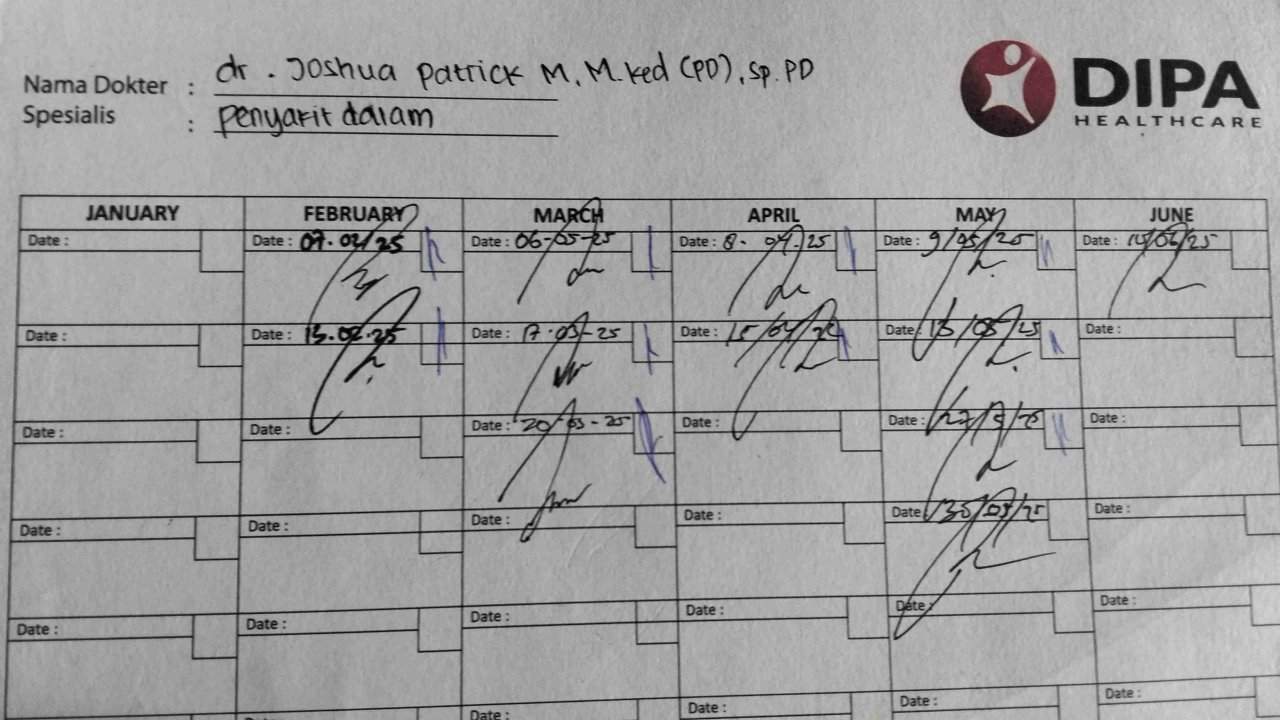 Nama Dokter : dr. Joshua Patrick M, M.Ked (PD), Sp.PD
Spesialis : Penyakit dalam
DIPA
HEALTHCARE
JANUARY FEBRUARY MARCH APRIL MAY JUNE
Date : Date : 07.02/25 Date : 06-03-25 Date : 8-04-25 Date : 9/05/25 Date : 14/06/25
Date : Date : 13.02.25 Date : 17-03-25 Date : 15/04/25 Date : 15/05/25 Date :
Date : Date : Date : 20/03-25 Date : Date : 27/5/25 Date :
Date : Date : Date : Date : Date /05/25 Date :
Date : Date : Date : Date : Date : Date :
Date : Date : Date : Date : Date :